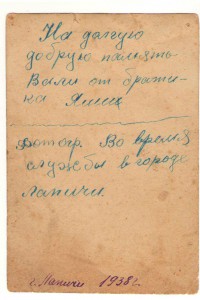 На далгую
добрую память
Вали от брати-
ка Яши
фотогр. Во время
службы в городе
лапичи.
г. Лапичи 1938 г.